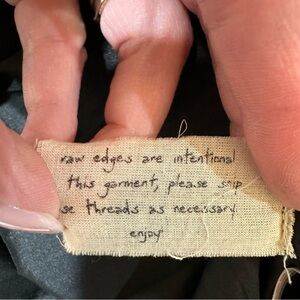 raw edges are intentional
this garment, please snip
se threads as necessary.
enjoy